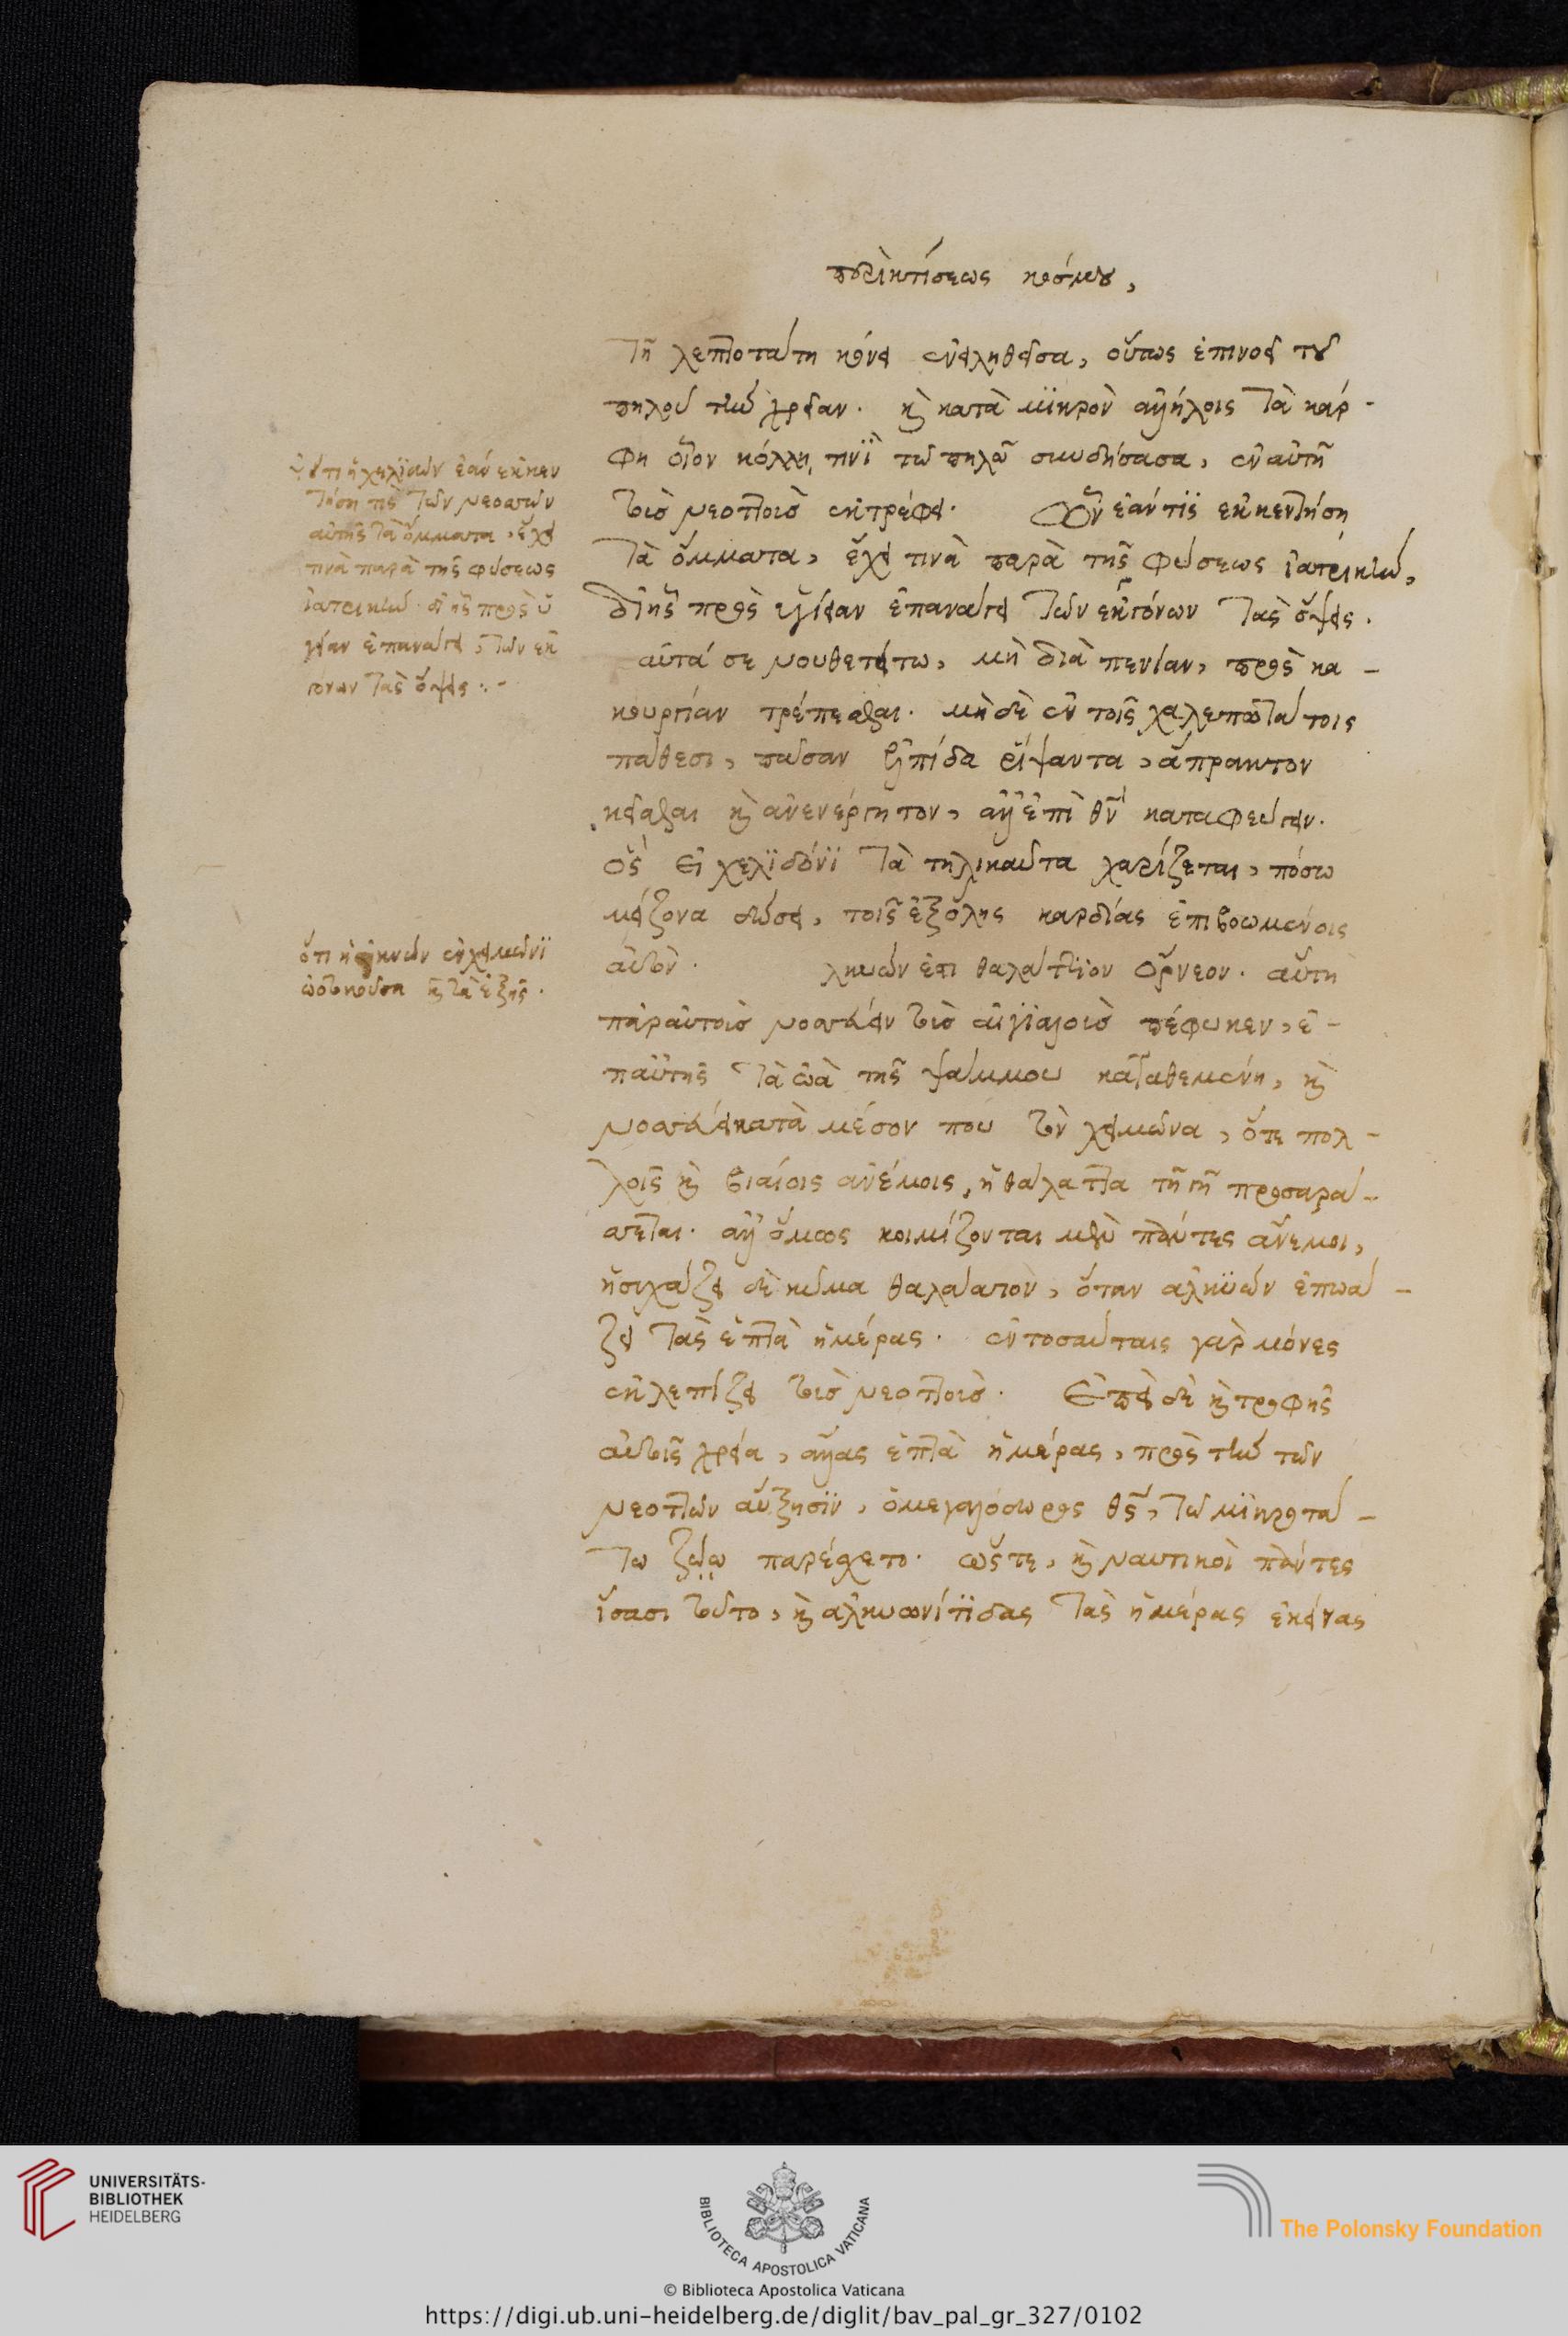 περὶ κτίσεως κόσμου,
τῆ λεπτοτάτη κόνει ἐνειληθεῖσα, οὕτως ἐπινοεῖ τοῦ
πηλοῦ τὴν χρείαν. καὶ κατὰ μϊκρὸν ἀλλήλοις τὰ κάρ-
φη οἷον κόλλη τινῒ τῶ πηλῶ συνδήσασα, ἐν αὐτῆ
τοὺς νεοττοὺς ἐκτρέφει. ὧν ἐάν τϊς ἐκκεντήση
τὰ ὄμματα, ἔχει τινὰ παρὰ τῆς φύσεως ἰατρικὴν,
δι ἧς πρὸς ὑγίειαν ἐπανάγει τῶν ἐκγόνων τὰς ὄψεις.
αὐτά σε νουθετείτω, μὴ διὰ πενίαν, πρὸς κα-
κουργίαν τρέπεσθαι. μὴ δὲ ἐν τοῖς χαλεπωτάτοις
πάθεσι, πᾶσαν ἐλπίδα ῥίψαντα, ἄπρακτον
κεῖσθαι καὶ ἀνενέργητον, ἀλλ ἐπὶ θν καταφεύγειν.
ὃς εἰ χελϊδόνϊ τὰ τηλικαῦτα χαρίζεται, πόσω
μείζονα δώσει, τοῖς ἐξ ὅλης καρδίας ἐπιβοωμένοις
αὐτόν. λκυών ἐστι θαλάττϊον ὄρνεον. αὕτη
παρ αὐτοὺς νοσσεύειν τοὺς αἰγϊαλοὺς πέφυκεν, ἐ-
π αὐτῆς τὰ ὠὰ τῆς ψάμμου καταθεμένη, καὶ
νοσσεύει κατὰ μέσον που τὸν χειμῶνα, ὅτε πολ-
λοῖς καὶ βιαίοις ἀνέμοις, ἡ θάλαττα τῆ γῆ προσαρά-
σσεται. ἀλλ ὅμως κοιμίζονται μὲν πάντες ἄνεμοι,
ἡσυχάζει δὲ κῦμα θαλάσσιον, ὅταν ἀλκϋὼν ἐπωά-
ζει τὰς ἑπτὰ ἡμέρας. ἐν τοσαύταις γὰρ μόνες
ἐκλεπίζει τοὺς νεοττούς. Ἐπεὶ δὲ καὶ τροφῆς
αὐτοῖς χρεία, ἄλλας ἑπτὰ ἡμέρας, πρὸς τὴν τῶν
νεοττῶν αὔξησϊν, ὁ μεγαλόδωρος θς, τῶ μϊκροτά-
τω ζώω παρέσχετο. ὥστε, καὶ ναυτικοὶ πάντες
ἴσασι τοῦτο, καὶ ἀλκυωνίτϊδας τὰς ἡμέρας ἐκείνας
ὅτι ἡ χελϊδὼν ἐάν ἐκκεν
τήση τις τῶν νεοσσῶν
αὐτῆς τὰ ὄμματα, ἔχει
τινὰ παρὰ τῆς φύσεως
ἰατρικὴν. δι ἧς πρὸς ὑ
γείαν ἐπανάγει, τῶν ἐκ
γόνων τὰς ὄψεις :-
ὅτι ἡ ἀλκυὼν ἐν χειμῶνϊ
ὠοτοκοῦσα καὶ τὰ ἑξῆς.
UNIVERSITÄTS-
BIBLIOTHEK
HEIDELBERG
BIBLIOTECA APOSTOLICA VATICANA
The Polonsky Foundation
© Biblioteca Apostolica Vaticana
https://digi.ub.uni-heidelberg.de/diglit/bav_pal_gr_327/0102